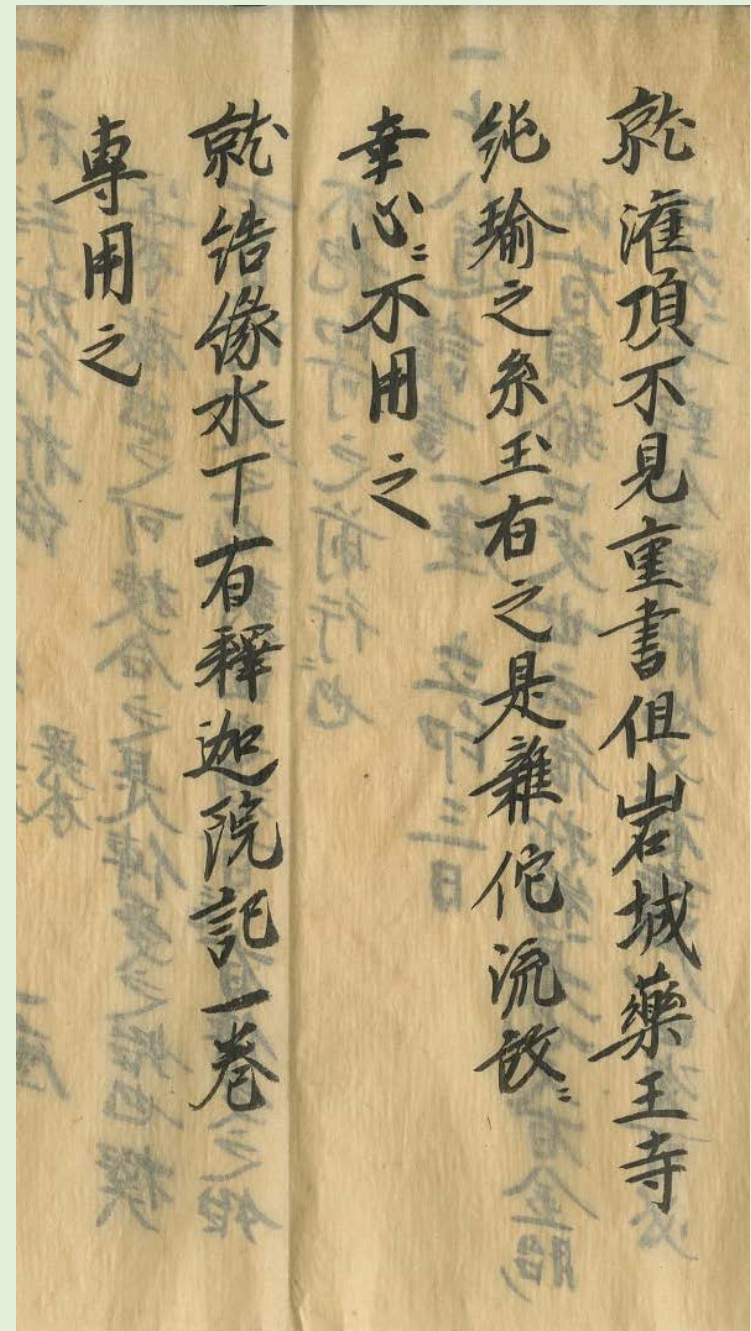 就灌頂不見重書但岩城藥王寺
純瑜之糸玉有之是雖佗流故ニ
幸心ニ不用之
就結縁水丁有釋迦院記一巻
専用之